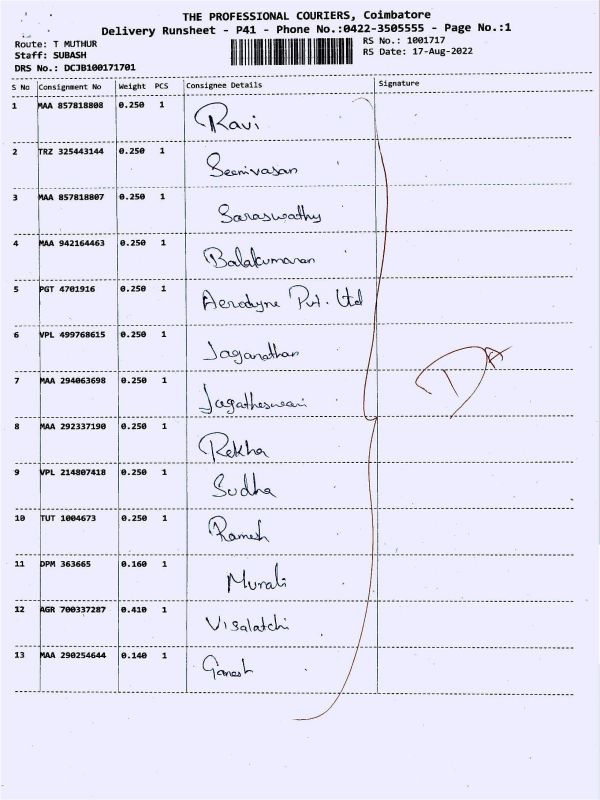 THE PROFESSIONAL COURIERS, Coimbatore
Delivery Runsheet - P41 - Phone No.:0422-3505555 - Page No.:1
Route: T MUTHUR
RS No.: 1001717
Staff: SUBASH
RS Date: 17-Aug-2022
DRS No.: DCJB100171701
S No Consignment No Weight PCS Consignee Details Signature
1 MAA 857818808 0.250 1 Ravi
2 TRZ 325443144 0.250 1 Seenivasan
3 MAA 857818807 0.250 1 Saraswathy
4 MAA 942164463 0.250 1 Balakumaran
5 PGT 4701916 0.250 1 Aerodyne Pvt. Ltd
6 VPL 499768615 0.250 1 Jaganathan
7 MAA 294063698 0.250 1 Jagatheswari
8 MAA 292337190 0.250 1 Rekha
9 VPL 214807418 0.250 1 Sudha
10 TUT 1004673 0.250 1 Ramesh
11 DPM 363665 0.160 1 Murali
12 AGR 700337287 0.410 1 Visalatchi
13 MAA 290254644 0.140 1 Ganesh